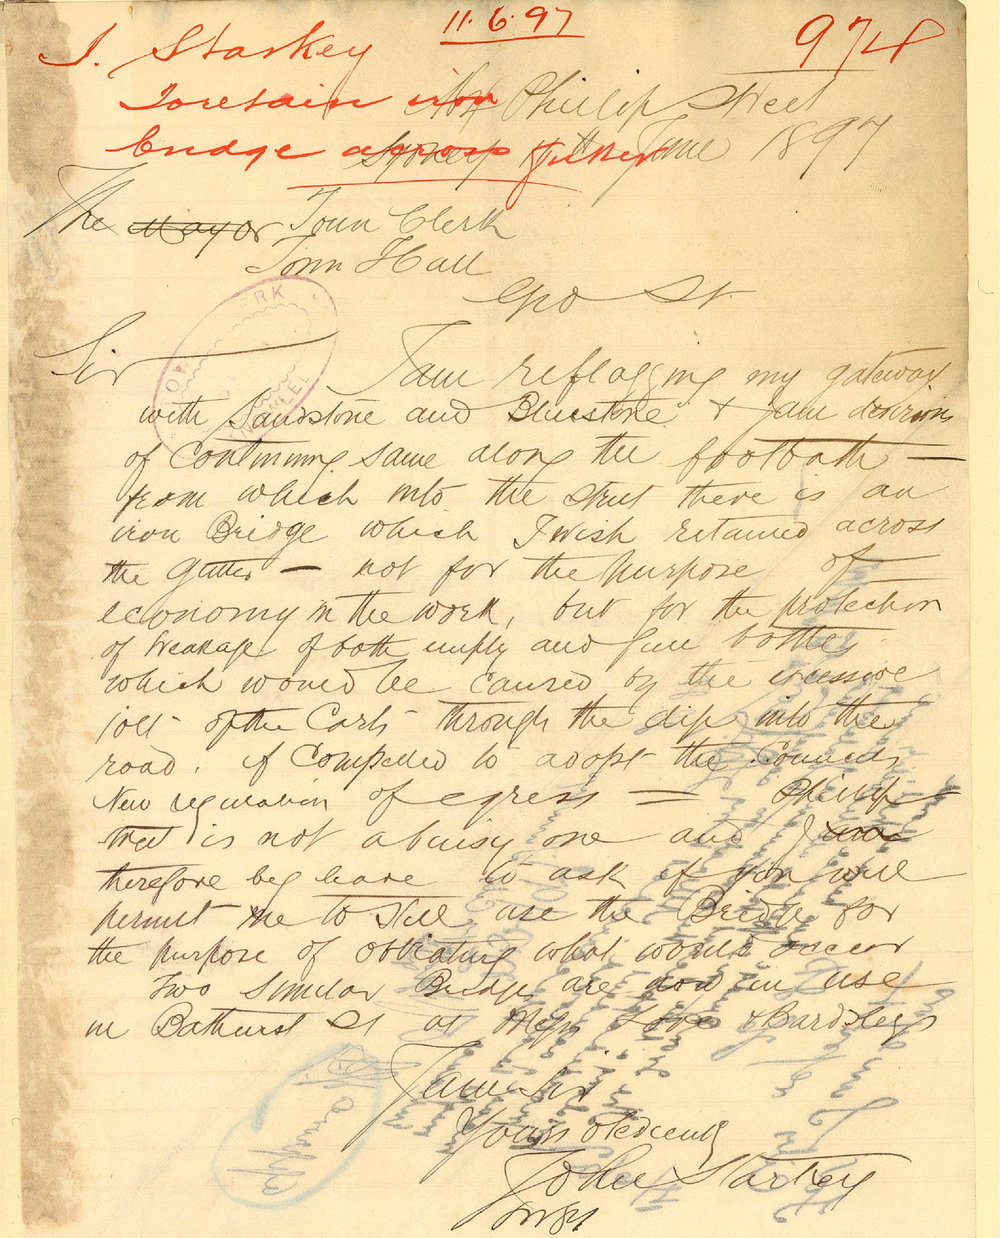 11.6.97
J. Starkey
974
To retain iron
bridge across gutter
Phillip Street
Sydney 10th June 1897
The Mayor Town Clerk
Town Hall
Geo St.
Sir
I am reflagging my gateway
with Sandstone and Bluestone & I am desirous
of Continuing same along the footpath —
from which into the Street there is an
iron Bridge which I wish retained across
the Gutter — not for the purpose of
economy in the work, but for the protection
of breakage of both empty and full bottles
which would be caused by the excessive
jolt of the Carts through the dip into the
road. if Compelled to adopt the Councils
New regulation of egress — Phillip
Street is not a busy one and I
therefore beg leave to ask if you will
permit me to still use the Bridge for
the purpose of obviating what would occur
Two Similar Bridges are now in use
in Bathurst St at Messrs Love & Bardsleys
I am Sir
Yours obediently
John Starkey